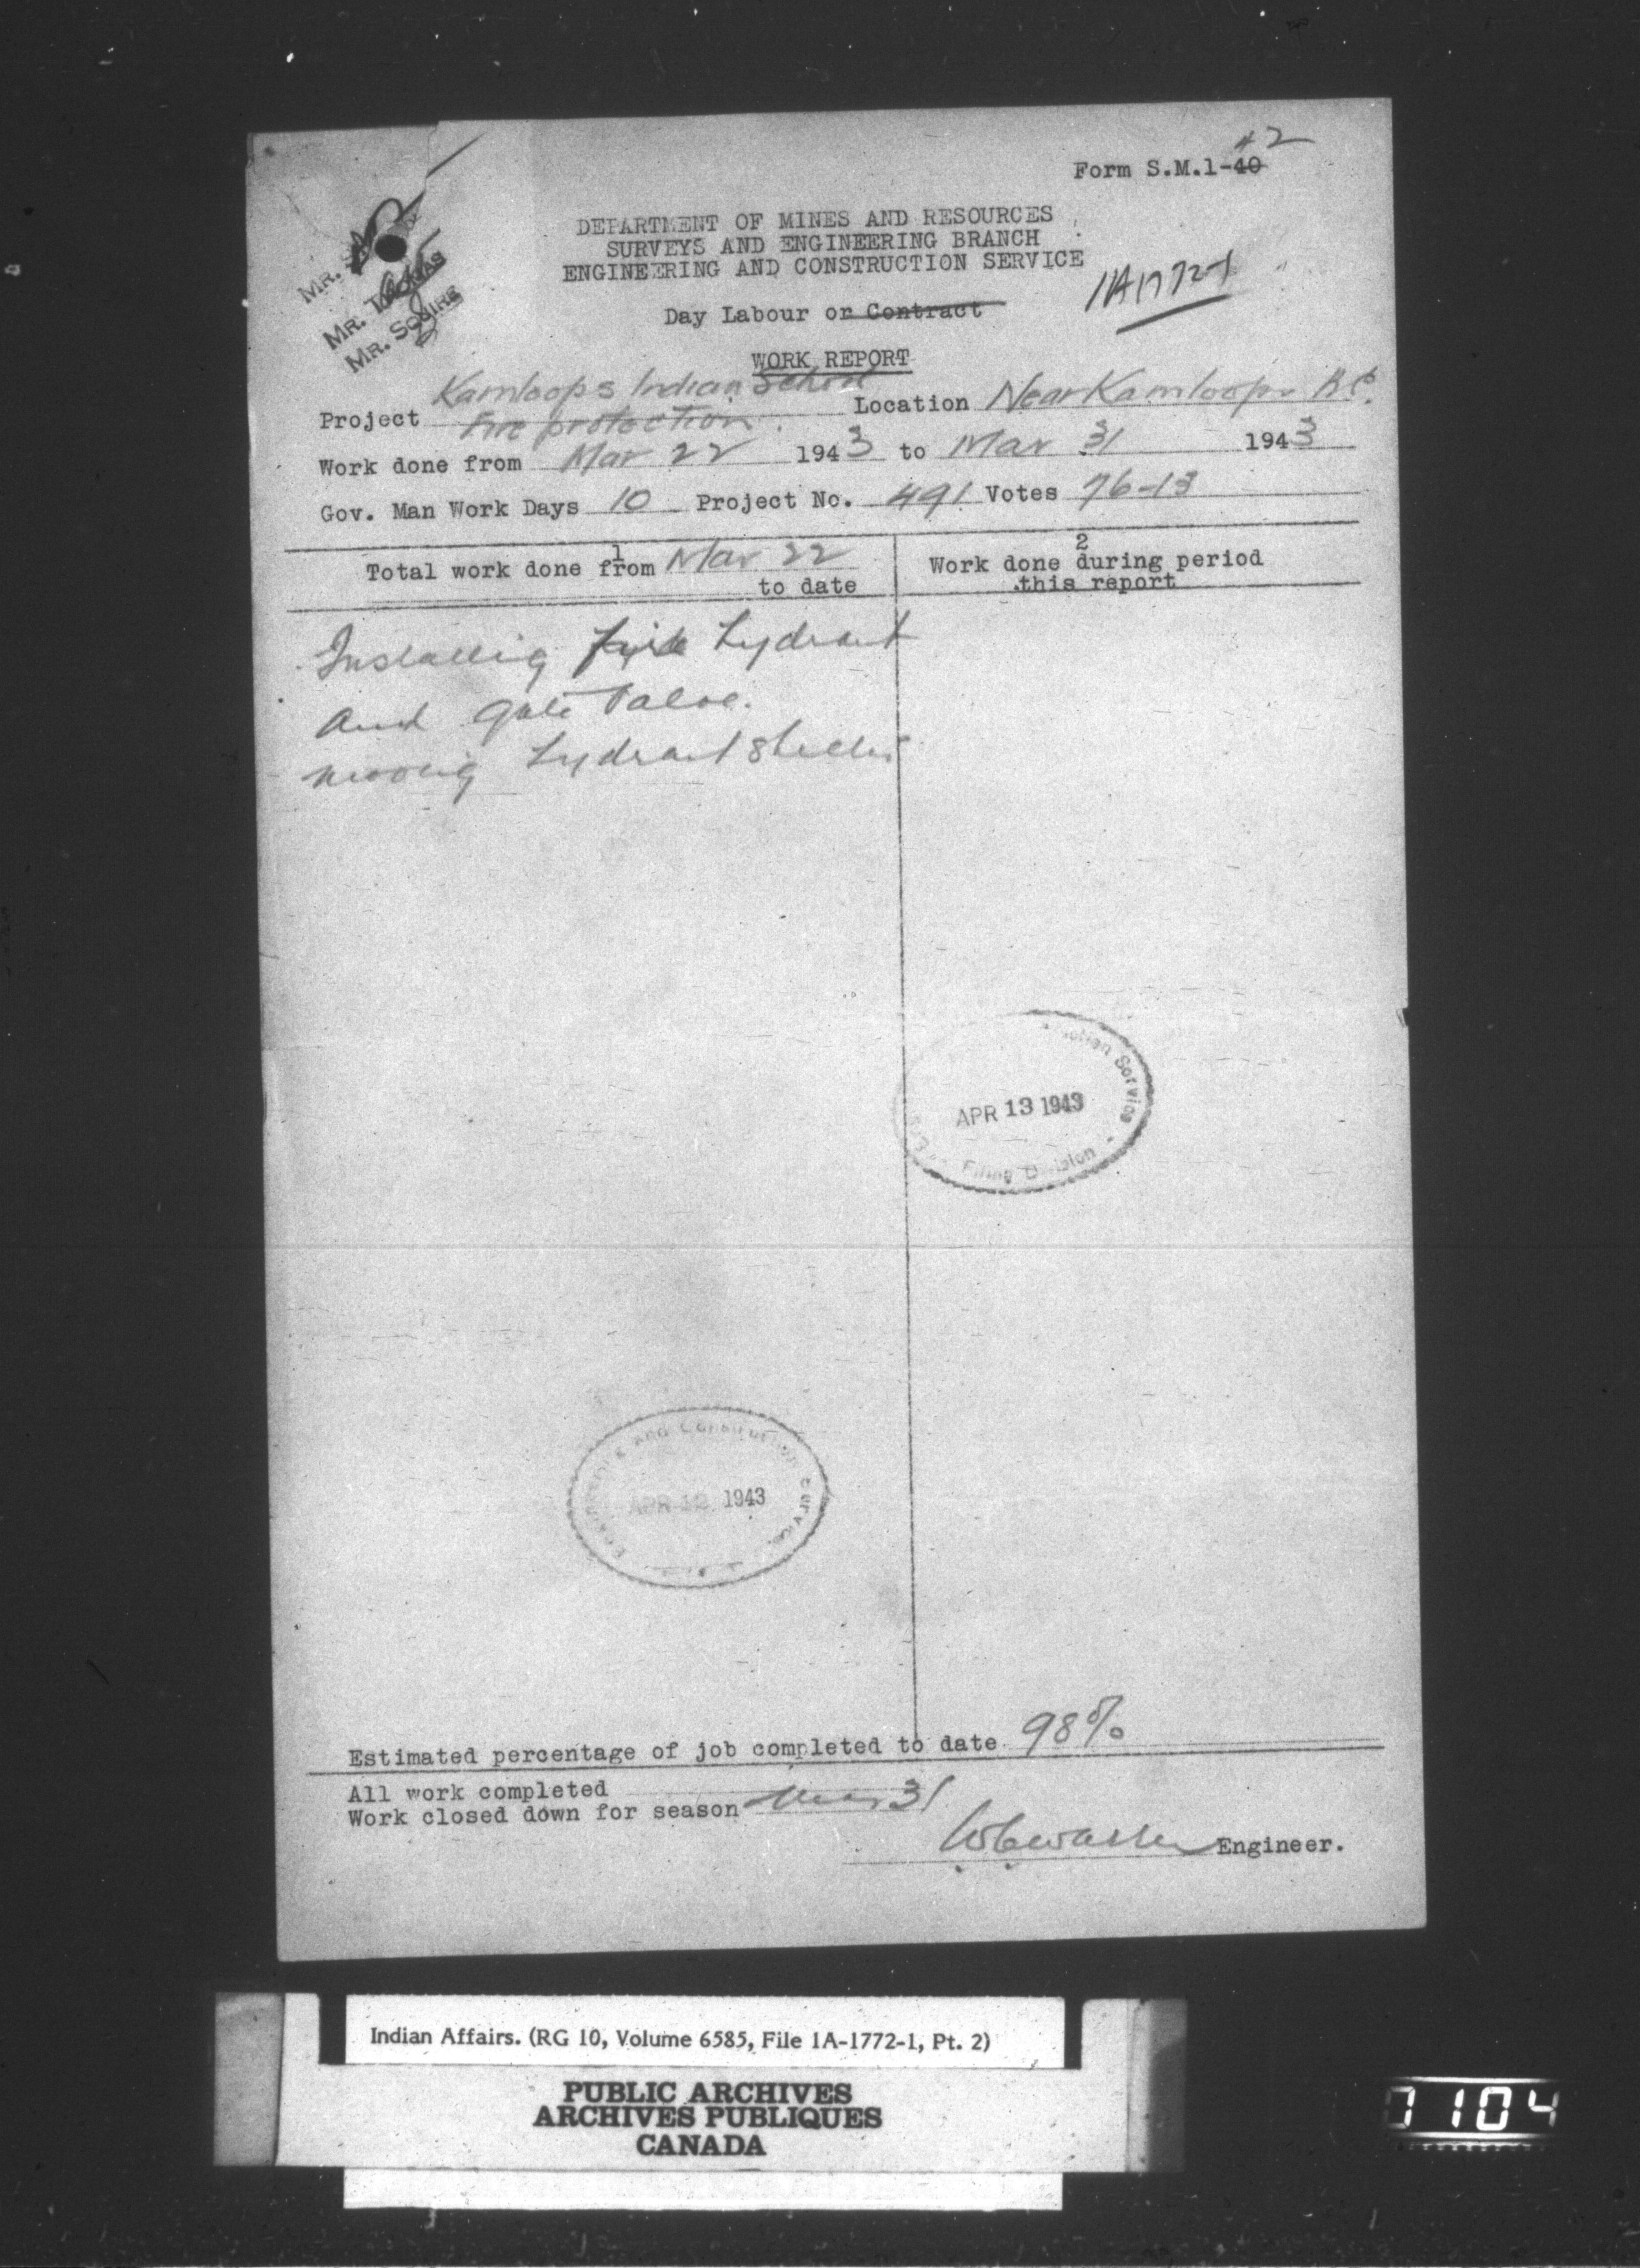 42
Form S.M.1-40
MR.
MR. THOMAS
MR. SQUIRE
DEPARTMENT OF MINES AND RESOURCES
SURVEYS AND ENGINEERING BRANCH
ENGINEERING AND CONSTRUCTION SERVICE
Day Labour or Contract
WORK REPORT
Kamloops Indian School
Project Fire protection. Location Near Kamloops B.C.
Work done from Mar 22 1943 to Mar 31 1943
Gov. Man Work Days 10 Project No. 491 Votes 76-13
1
Total work done from Mar 22
to date
2
Work done during period
this report
Installing fire hydrant
and gate valve.
moving hydrant shelter
Service
APR 13 1943
Filing Division
Engineering and Construction Service
APR 1943
Estimated percentage of job completed to date 98%
All work completed
Work closed down for season Mar 31
Engineer.
Indian Affairs. (RG 10, Volume 6585, File 1A-1772-1, Pt. 2)
PUBLIC ARCHIVES
ARCHIVES PUBLIQUES
CANADA